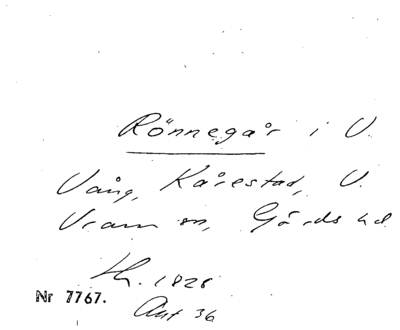 Rönnegår i V.
Vång, Kårestad, V.
Vram sn, Gärds hd
Lh. 1828
Nr 7767.
Ant 36